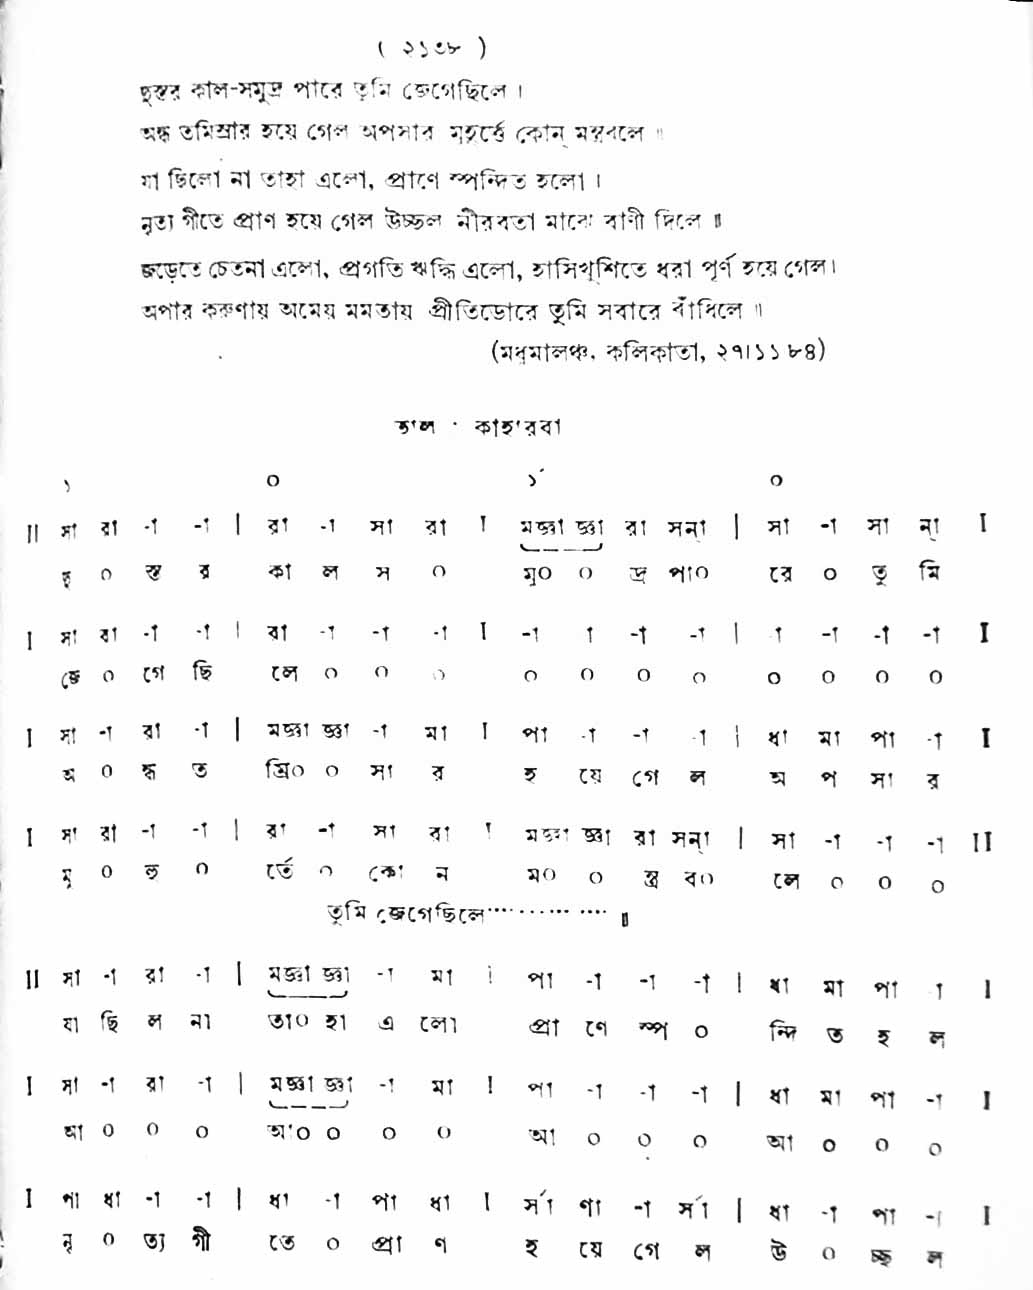 ( ২১৩৮ )
দুস্তর কাল-সমুদ্র পারে তুমি জেগেছিলে ।
অন্ধ তমিস্রার হয়ে গেল অপসার মুহূর্ত্তে কোন্ মন্ত্রবলে ॥
যা ছিলো না তাহা এলো, প্রাণে স্পন্দিত হলো ।
নৃত্য গীতে প্রাণ হয়ে গেল উচ্ছল নীরবতা মাঝে বাণী দিলে ॥
জড়েতে চেতনা এলো, প্রগতি ঋদ্ধি এলো, হাসিখুশিতে ধরা পূর্ণ হয়ে গেল।
অপার করুণায় অমেয় মমতায় প্রীতিডোরে তুমি সবারে বাঁধিলে ॥
(মধুমালঞ্চ, কলিকাতা, ২৭।১১ ৮৪)
তাল : কাহারবা
১ ০ ১´ ০
II সা রা -া -া | রা -া সা রা I মজ্ঞা জ্ঞা রা সন্া | সা -া সা ন্া I
দু ০ স্ত র কা ল স ০ মু০ ০ দ্র পা০ রে ০ তু মি
I সা রা -া -া | রা -া -া -া I -া া -া -া | া -া -া -া I
জে ০ গে ছি লে ০ ০ ০ ০ ০ ০ ০ ০ ০ ০ ০
I সা -া রা -া | মজ্ঞা জ্ঞা -া মা I পা -া -া -া | ধা মা পা -া I
অ ০ ন্ধ ত মি০ ০ সা র হ য়ে গে ল অ প সা র
I সা রা -া -া | রা -া সা রা I মজ্ঞা জ্ঞা রা সন্া | সা -া -া -া II
মু ০ হু ০ র্তে ০ কো ন ম০ ০ ন্ত্র ব০ লে ০ ০ ০
তুমি জেগেছিলে·············· ॥
II সা -া রা -া | মজ্ঞা জ্ঞা -া মা I পা -া -া -া | ধা মা পা া I
যা ছি ল না তা০ হা এ লো প্রা ণে স্প ০ ন্দি ত হ ল
I সা -া রা -া | মজ্ঞা জ্ঞা -া মা I পা -া -া -া | ধা মা পা -া I
আ ০ ০ ০ আ০ ০ ০ ০ আ ০ ০ ০ আ ০ ০ ০
I পা ধা -া -া | ধা -া পা ধা I র্সা ণা -া র্সা | ধা -া পা -া I
নৃ ০ ত্য গী তে ০ প্রা ণ হ য়ে গে ল উ ০ চ্ছ ল